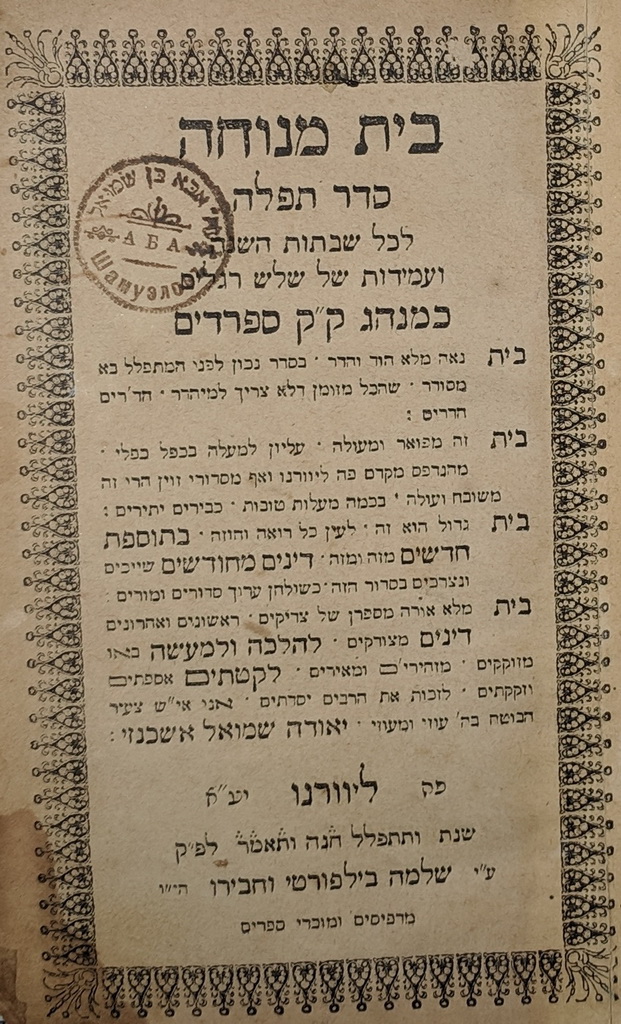 בית מנוחה
סדר תפלה
לכל שבתות השנה
ועמידות של שלש רגלים
כמנהג ק״ק ספרדים
בית נאה מלא הוד והדר · בסדר נכון לפני המתפלל בא
מסודר · שהכל מזומן דלא צריך למיהדר · חד׳רים
חדרים :
בית זה מפואר ומעולה · עליון למעלה בכפל כפלי ·
מהנדפס מקדם פה ליוורנו ואף מסדורי זוין הרי זה
משובח ועולה · בכמה מעלות טובות · כבירים יתירים :
בית גדול הוא זה · לעין כל רואה וחוזה · בתוספת
חדשים מזה ומזה · דינים מחודשים שייכים
ונצרכים בסדור הזה · כשולחן ערוך סדורים ומורים :
בית מלא אורה מספרן של צדיקים · ראשונים ואחרונים
דינים מצודקים · להלכה ולמעשה באו
מזוקקים · מזהירי׳ם ומאירים · לקטתים אספתים
וזקקתים · לזכות את הרבים יסדתים · אני אי״ש צעיר
הבוטח בה׳ עוזי ומעוזי · יאודה שמואל אשכנזי :
פק ליוורנו יע״א
שנת ותתפלל חנה ותאמר לפ״ק
ע״י שלמה בילפורטי וחבירו הי״ו
מדפיסים ומוכרי ספרים
אבא בן שמואל
АБА